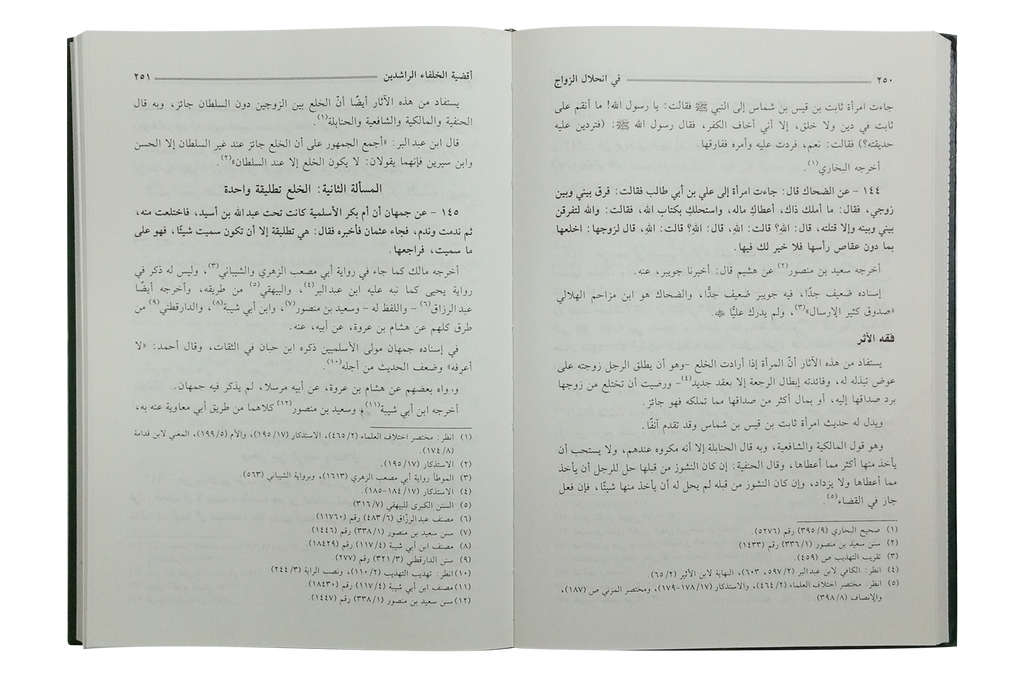 ٢٥٠ في انحلال الزواج
جاءت امرأة ثابت بن قيس بن شماس إلى النبي ﷺ فقالت: يا رسول الله! ما أنقم على
ثابت في دين ولا خلق، إلا أني أخاف الكفر، فقال رسول الله ﷺ: (فتردين عليه
حديقته؟) فقالت: نعم، فردت عليه وأمره ففارقها.
أخرجه البخاري(١).
١٤٤ - عن الضحاك قال: جاءت امرأة إلى علي بن أبي طالب فقالت: فرق بيني وبين
زوجي، فقال: ما أملك ذاك، أعطاكِ ماله، واستحلكِ بكتاب الله، فقالت: والله لتفرقن
بيني وبينه وإلا قتلته، قال: اللهِ؟ قالت: اللهِ، قال: اللهِ؟ قالت: اللهِ، قال لزوجها: اخلعها
بما دون عقاص رأسها فلا خير لك فيها.
أخرجه سعيد بن منصور(٢) عن هشيم قال: أخبرنا جويبر، عنه.
إسناده ضعيف جدًّا، فيه جويبر ضعيف جدًّا، والضحاك هو ابن مزاحم الهلالي
«صدوق كثير الإرسال»(٣)، ولم يدرك عليًّا
فقه الأثر
يستفاد من هذه الآثار أنّ المرأة إذا أرادت الخلع -وهو أن يطلق الرجل زوجته على
عوض تبذله له، وفائدته إبطال الرجعة إلا بعقد جديد(٤)- ورضيت أن تختلع من زوجها
برد صداقها إليه، أو بمال أكثر من صداقها مما تملكه فهو جائز.
ويدل له حديث امرأة ثابت بن قيس بن شماس وقد تقدم آنفًا.
وهو قول المالكية والشافعية، وبه قال الحنابلة إلا أنه مكروه عندهم، ولا يستحب أن
يأخذ منها أكثر مما أعطاها، وقال الحنفية: إن كان النشوز من قبلها حل للرجل أن يأخذ
مما أعطاها ولا يزداد، وإن كان النشوز من قبله لم يحل له أن يأخذ منها شيئًا، فإن فعل
جاز في القضاء(٥)
(١) صحيح البخاري (٣٩٥/٩) رقم (٥٢٧٦)
(٢) سنن سعيد بن منصور (٣٣٦/١) رقم (١٤٣٣)
(٣) تقريب التهذيب ص (٤٥٩)
(٤) انظر: الكافي لابن عبدالبر (٥٩٧/٢، ٦٠٣)، النهاية لابن الأثير (٦٥/٢)
(٥) انظر: مختصر اختلاف العلماء (٤٦٤/٢)، والاستذكار (١٧٨/١٧-١٧٩)، ومختصر المزني ص (١٨٧)،
والإنصاف (٣٩٨/٨).
أقضية الخلفاء الراشدين ٢٥١
يستفاد من هذه الآثار أيضًا أنّ الخلع بين الزوجين دون السلطان جائز، وبه قال
الحنفية والمالكية والشافعية والحنابلة(١).
قال ابن عبدالبر: «أجمع الجمهور على أن الخلع جائز عند غير السلطان إلا الحسن
وابن سيرين فإنهما يقولان: لا يكون الخلع إلا عند السلطان»(٢).
المسألة الثانية: الخلع تطليقة واحدة
١٤٥ - عن جمهان أن أم بكر الأسلمية كانت تحت عبدالله بن أسيد، فاختلعت منه،
ثم ندمت وندم، فجاء عثمان فأخبره فقال: هي تطليقة إلا أن تكون سميت شيئًا، فهو على
ما سميت، فراجعها.
أخرجه مالك كما جاء في رواية أبي مصعب الزهري والشيباني(٣)، وليس له ذكر في
رواية يحيى كما نبه عليه ابن عبدالبر(٤)، والبيهقي(٥) من طريقه، وأخرجه أيضًا
عبدالرزاق(٦) - واللفظ له - وسعيد بن منصور(٧)، وابن أبي شيبة(٨)، والدارقطني(٩) من
طرق كلهم عن هشام بن عروة، عن أبيه، عنه.
في إسناده جمهان مولى الأسلميين ذكره ابن حبان في الثقات، وقال أحمد: «لا
أعرفه» وضعف الحديث من أجله(١٠).
ورواه بعضهم عن هشام بن عروة، عن أبيه مرسلا، لم يذكر فيه جمهان.
أخرجه ابن أبي شيبة(١١) وسعيد بن منصور(١٢) كلاهما من طريق أبي معاوية عنه به،
(١) انظر: مختصر اختلاف العلماء (٤٦٥/٢)، الاستذكار (١٩٥/١٧)، والأم (١٩٩/٥)، المغني لابن قدامة
(١٧٤/٨)
(٢) الاستذكار (١٩٥/١٧).
(٣) الموطأ رواية أبي مصعب الزهري (١٦١٣)، وبرواية الشيباني (٥٦٣)
(٤) الاستذكار (١٨٤/١٧-١٨٥).
(٥) السنن الكبرى للبيهقي (٣١٦/٧)
(٦) مصنف عبدالرزّاق (٤٨٣/٦) رقم (١١٧٦٠)
(٧) سنن سعيد بن منصور (٣٣٨/١) رقم (١٤٤٦)
(٨) مصنف ابن أبي شيبة (١١٧/٤) رقم (١٨٤٢٩)
(٩) سنن الدارقطني (٣٢١/٣) رقم (٢٧٧)
(١٠) انظر: تهذيب التهذيب (١١٠/٢)، ونصب الراية (٢٤٤/٣)
(١١) مصنف ابن أبي شيبة (١١٧/٤) رقم (١٨٤٣٠)
(١٢) سنن سعيد بن منصور (٣٣٨/١) رقم (١٤٤٧)